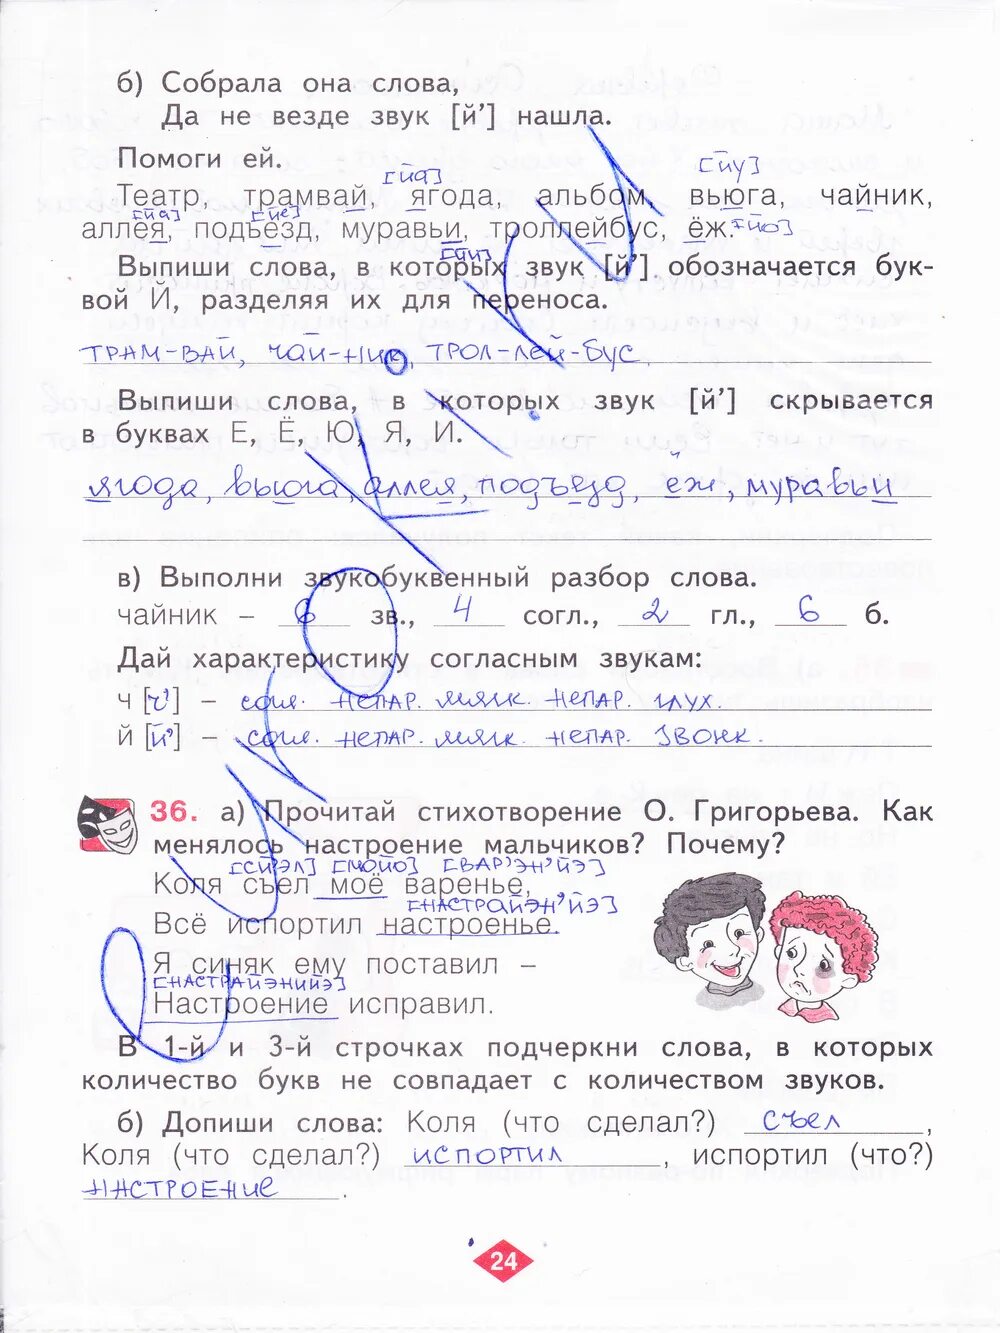 б) Собрала она слова,
Да не везде звук [й’] нашла.
Помоги ей.
[йа] [йу]
Театр, трамвай, ягода, альбом, вьюга, чайник,
[йа] [йе] [йо]
аллея, подъезд, муравьи, троллейбус, ёж.
[йи]
Выпиши слова, в которых звук [й’] обозначается бук-
вой Й, разделяя их для переноса.
ТРАМ-ВАЙ, ЧАЙ-НИК, ТРОЛ-ЛЕЙ-БУС
Выпиши слова, в которых звук [й’] скрывается
в буквах Е, Ё, Ю, Я, И.
ягода, вьюга, аллея, подъезд, ёж, муравьи
в) Выполни звукобуквенный разбор слова.
чайник – 6 зв., 4 согл., 2 гл., 6 б.
Дай характеристику согласным звукам:
Ч [ч’] – согл. непар. мягк. непар. глух.
Й [й’] – согл. непар. мягк. непар. звонк.
36. а) Прочитай стихотворение О. Григорьева. Как
менялось настроение мальчиков? Почему?
[СЙ’ЭЛ] [МОЙО] [ВАР’ЭН’ЙЭ]
Коля съел моё варенье,
[НАСТРАЙЭН’ЙЭ]
Всё испортил настроенье.
Я синяк ему поставил –
[НАСТРАЙЭНИЙЭ]
Настроение исправил.
В 1-й и 3-й строчках подчеркни слова, в которых
количество букв не совпадает с количеством звуков.
б) Допиши слова: Коля (что сделал?) съел,
Коля (что сделал?) испортил, испортил (что?)
НАСТРОЕНИЕ.
24